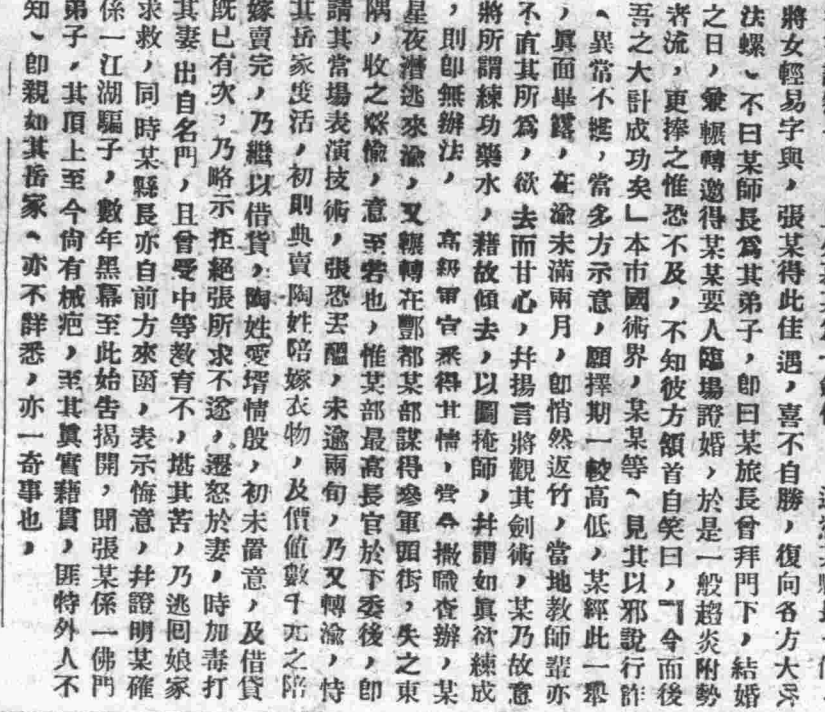 將女輕易字與，張某得此佳遇，喜不自勝，復向各方大吹
法螺、不曰某師長爲其弟子，卽曰某旅長曾拜門下，結婚
之日，兼輾轉邀得某某要人臨場證婚，於是一般趨炎附勢
者流，更捧之惟恐不及，不知彼方頷首自笑曰，『今而後
吾之大計成功矣』本市國術界，某某等、見其以邪說行詐
、異常不憤，當多方示意，願擇期一較高低，某經此一舉
，眞面畢露，在渝未滿兩月，卽悄然返竹，當地教師輩亦
不直其所爲，欲去而甘心，幷揚言將觀其劍術，某乃故意
將所謂練功藥水，藉故傾去，以圖掩飾，幷謂如眞欲練成
，則卽無辦法，　高級軍官悉得其情，當令撤職查辦，某
星夜潛逃來渝，又輾轉在酆都某部謀得參軍頭銜，失之東
隅，收之桑榆，意至若也，惟某部最高長官於下委後，卽
請其當場表演技術，張恐丟醜，未逾兩旬，乃又轉渝，恃
其岳家度活，初則典賣陶姓陪嫁衣物，及價値數千元之陪
嫁賣完，乃繼以借貸，陶姓愛壻情殷，初未置意，及借貸
旣已有次，乃略示拒絕張所求不遂，遷怒於妻，時加毒打
其妻出自名門，且曾受中等敎育不，堪其苦，乃逃回娘家
求救，同時某縣長亦自前方來函，表示悔意，幷證明某確
係一江湖騙子，數年黑幕至此始吿揭開，聞張某係一佛門
弟子，其頂上至今尙有械疤，至其眞實藉貫，匪特外人不
知、卽親如其岳家、亦不詳悉，亦一奇事也，